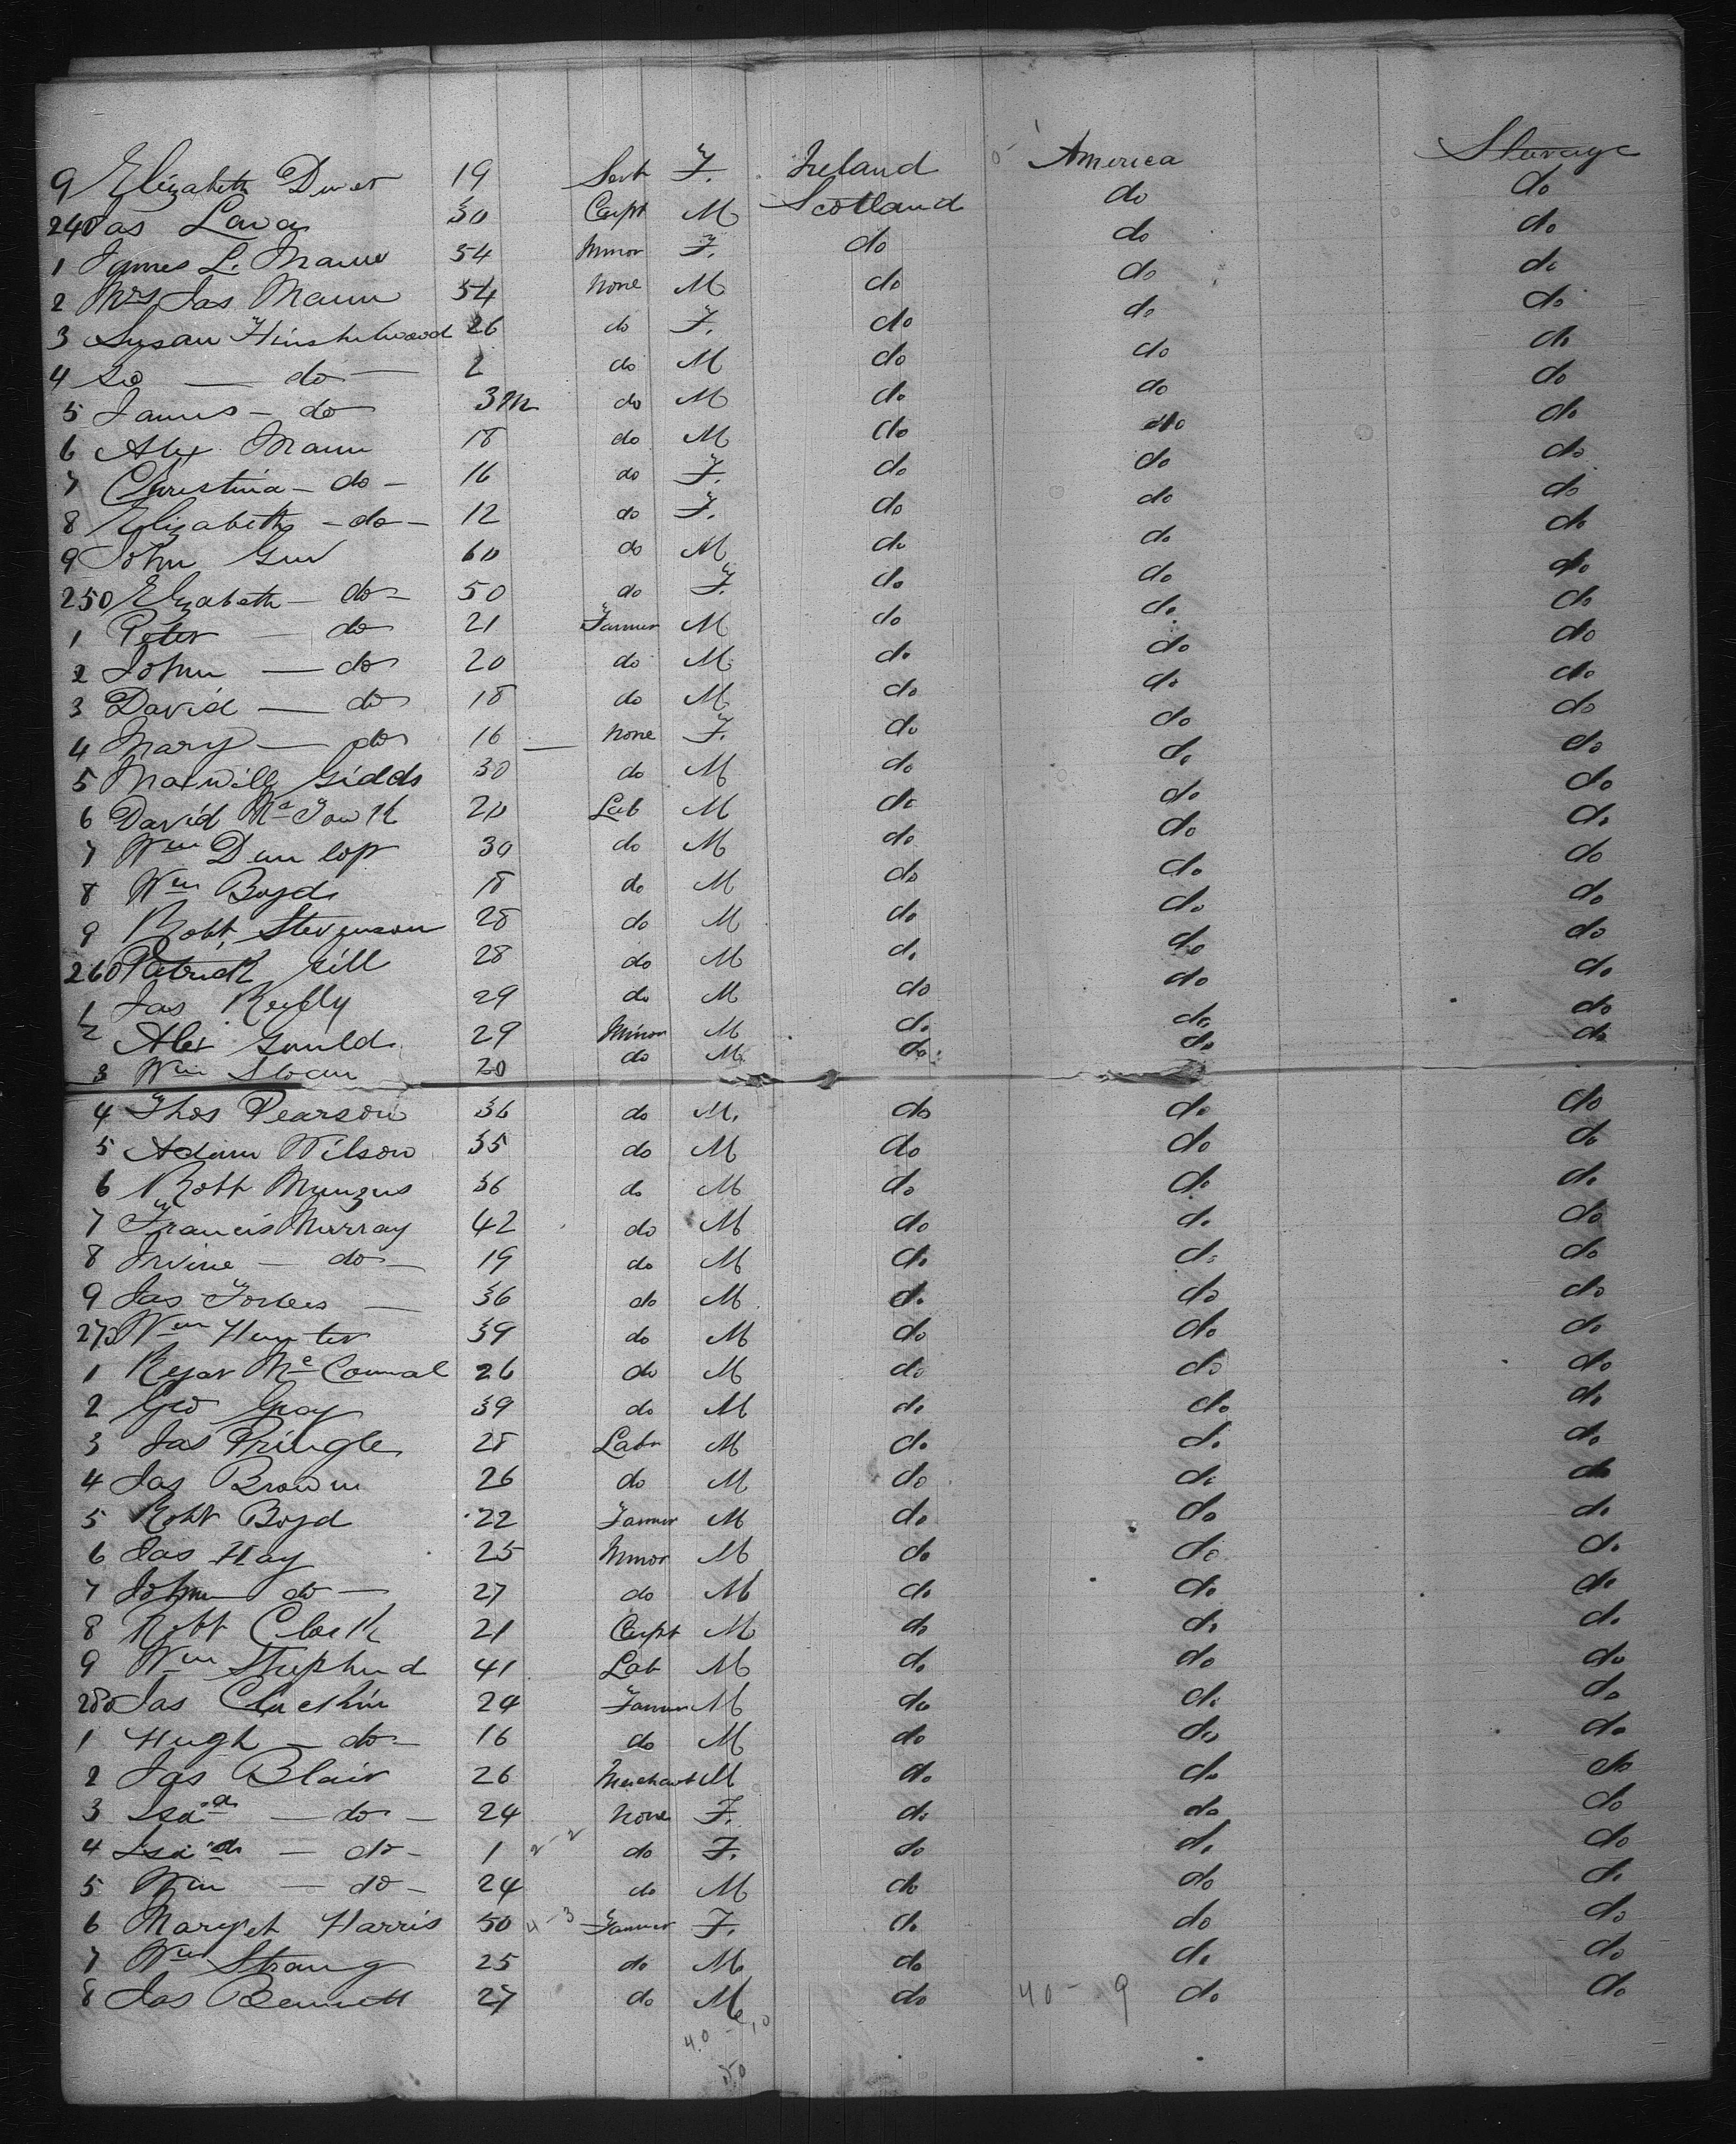 9 Elizabeth 19 Servt F. Ireland America Steerage
240 Jas 30 Carpt M Scotland do do
1 James L. Mann 54 Minor F. do do do
2 Mrs Jas Mann 54 None M do do do
3 Susan Hinshelwood 26 do F. do do do
4 Geo — do — 2 do M do do do
5 James - do 3m do M do do do
6 Alex Mann 18 do M do do do
7 Christina - do - 16 do F. do do do
8 Elizabeth - do - 12 do F. do do do
9 John 60 do M do do do
250 Elizabeth - do - 50 do F. do do do
1 Peter — do 21 Farmer M do do do
2 John — do 20 do M do do do
3 David — do 18 do M do do do
4 Mary — do 16 — None F. do do do
5 30 do M do do do
6 David 20 Lab M do do do
7 Wm Dunlop 30 do M do do do
8 Wm Boyd 18 do M do do do
9 Robt Stevenson 28 do M do do do
260 Patrick Gill 28 do M do do do
1 Jas Reilly 29 do M do do do
2 Alex Gould 29 Minor M do do do
3 Wm Sloan 20 do M do do do
4 Thos Pearson 36 do M. do do do
5 Adam Wilson 35 do M do do do
6 Robt 36 do M do do do
7 Francis Murray 42 do M do do do
8 Irvine — do — 19 do M do do do
9 Jas Forbes — 36 do M do do do
270 Wm Hunter 39 do M do do do
1 26 do M do do do
2 Geo Gray 39 do M do do do
3 Jas Pringle 28 Labr M do do do
4 Jas Brown 26 do M do do do
5 Robt Boyd 22 Farmer M do do do
6 Jas Hay 25 Minor M do do do
7 John do — 27 do M do do do
8 Robt Clark 21 Carpt M do do do
9 Wm Shephend 41 Lab M do do do
280 Jas 24 Farmer M do do do
1 Hugh — do - 16 do M do do do
2 Jas Blair 26 Merchant M do do do
3 Isa a — do - 24 None F. do do do
4 Isa — do - 1 2-2 do F. do do do
5 Wm — do - 24 do M do do do
6 Margret Harris 50 4-3 Farmer F. do do do
7 Wm Strang 25 do M do do do
8 Jas Bennett 27 do M do 40 - 9 do do
40 - 10
50